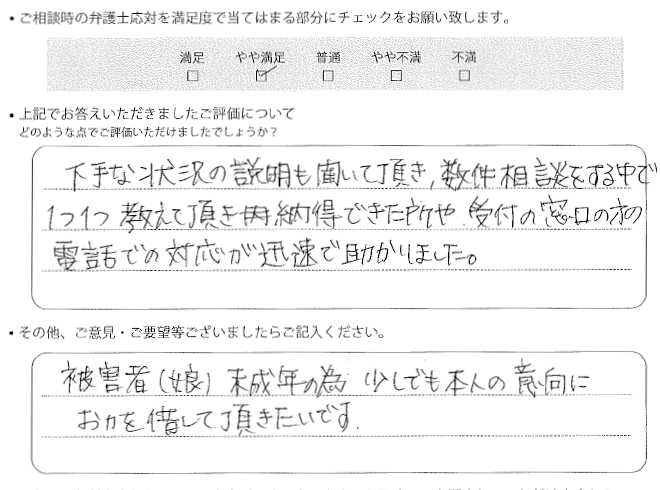 • ご相談時の弁護士応対を満足度で当てはまる部分にチェックをお願い致します。
満足 やや満足 普通 やや不満 不満
□ ☑ □ □ □
• 上記でお答えいただきましたご評価について
どのような点でご評価いただけましたでしょうか？
下手な状況の説明も聞いて頂き、数件相談をする中で
1つ1つ教えて頂き納得できた所や 受付の窓口の方の
電話での対応が迅速で助かりました。
• その他、ご意見・ご要望等ございましたらご記入ください。
被害者(娘) 未成年の為 少しでも本人の意向に
お力を借して頂きたいです.